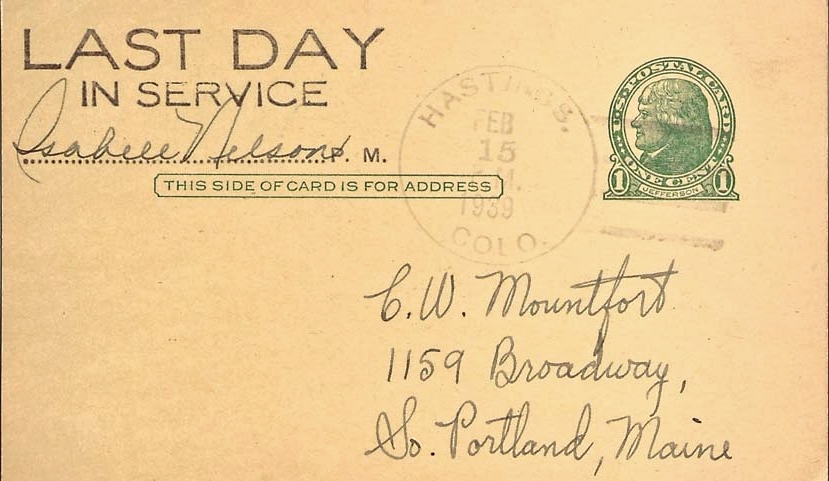 LAST DAY
IN SERVICE
Isabell Nelson P. M.
THIS SIDE OF CARD IS FOR ADDRESS
HASTINGS.
FEB
15
M.
1939
COLO.
U.S. POSTAL CARD
ONE CENT
1 JEFFERSON 1
C. W. Mountfort
1159 Broadway,
So. Portland, Maine